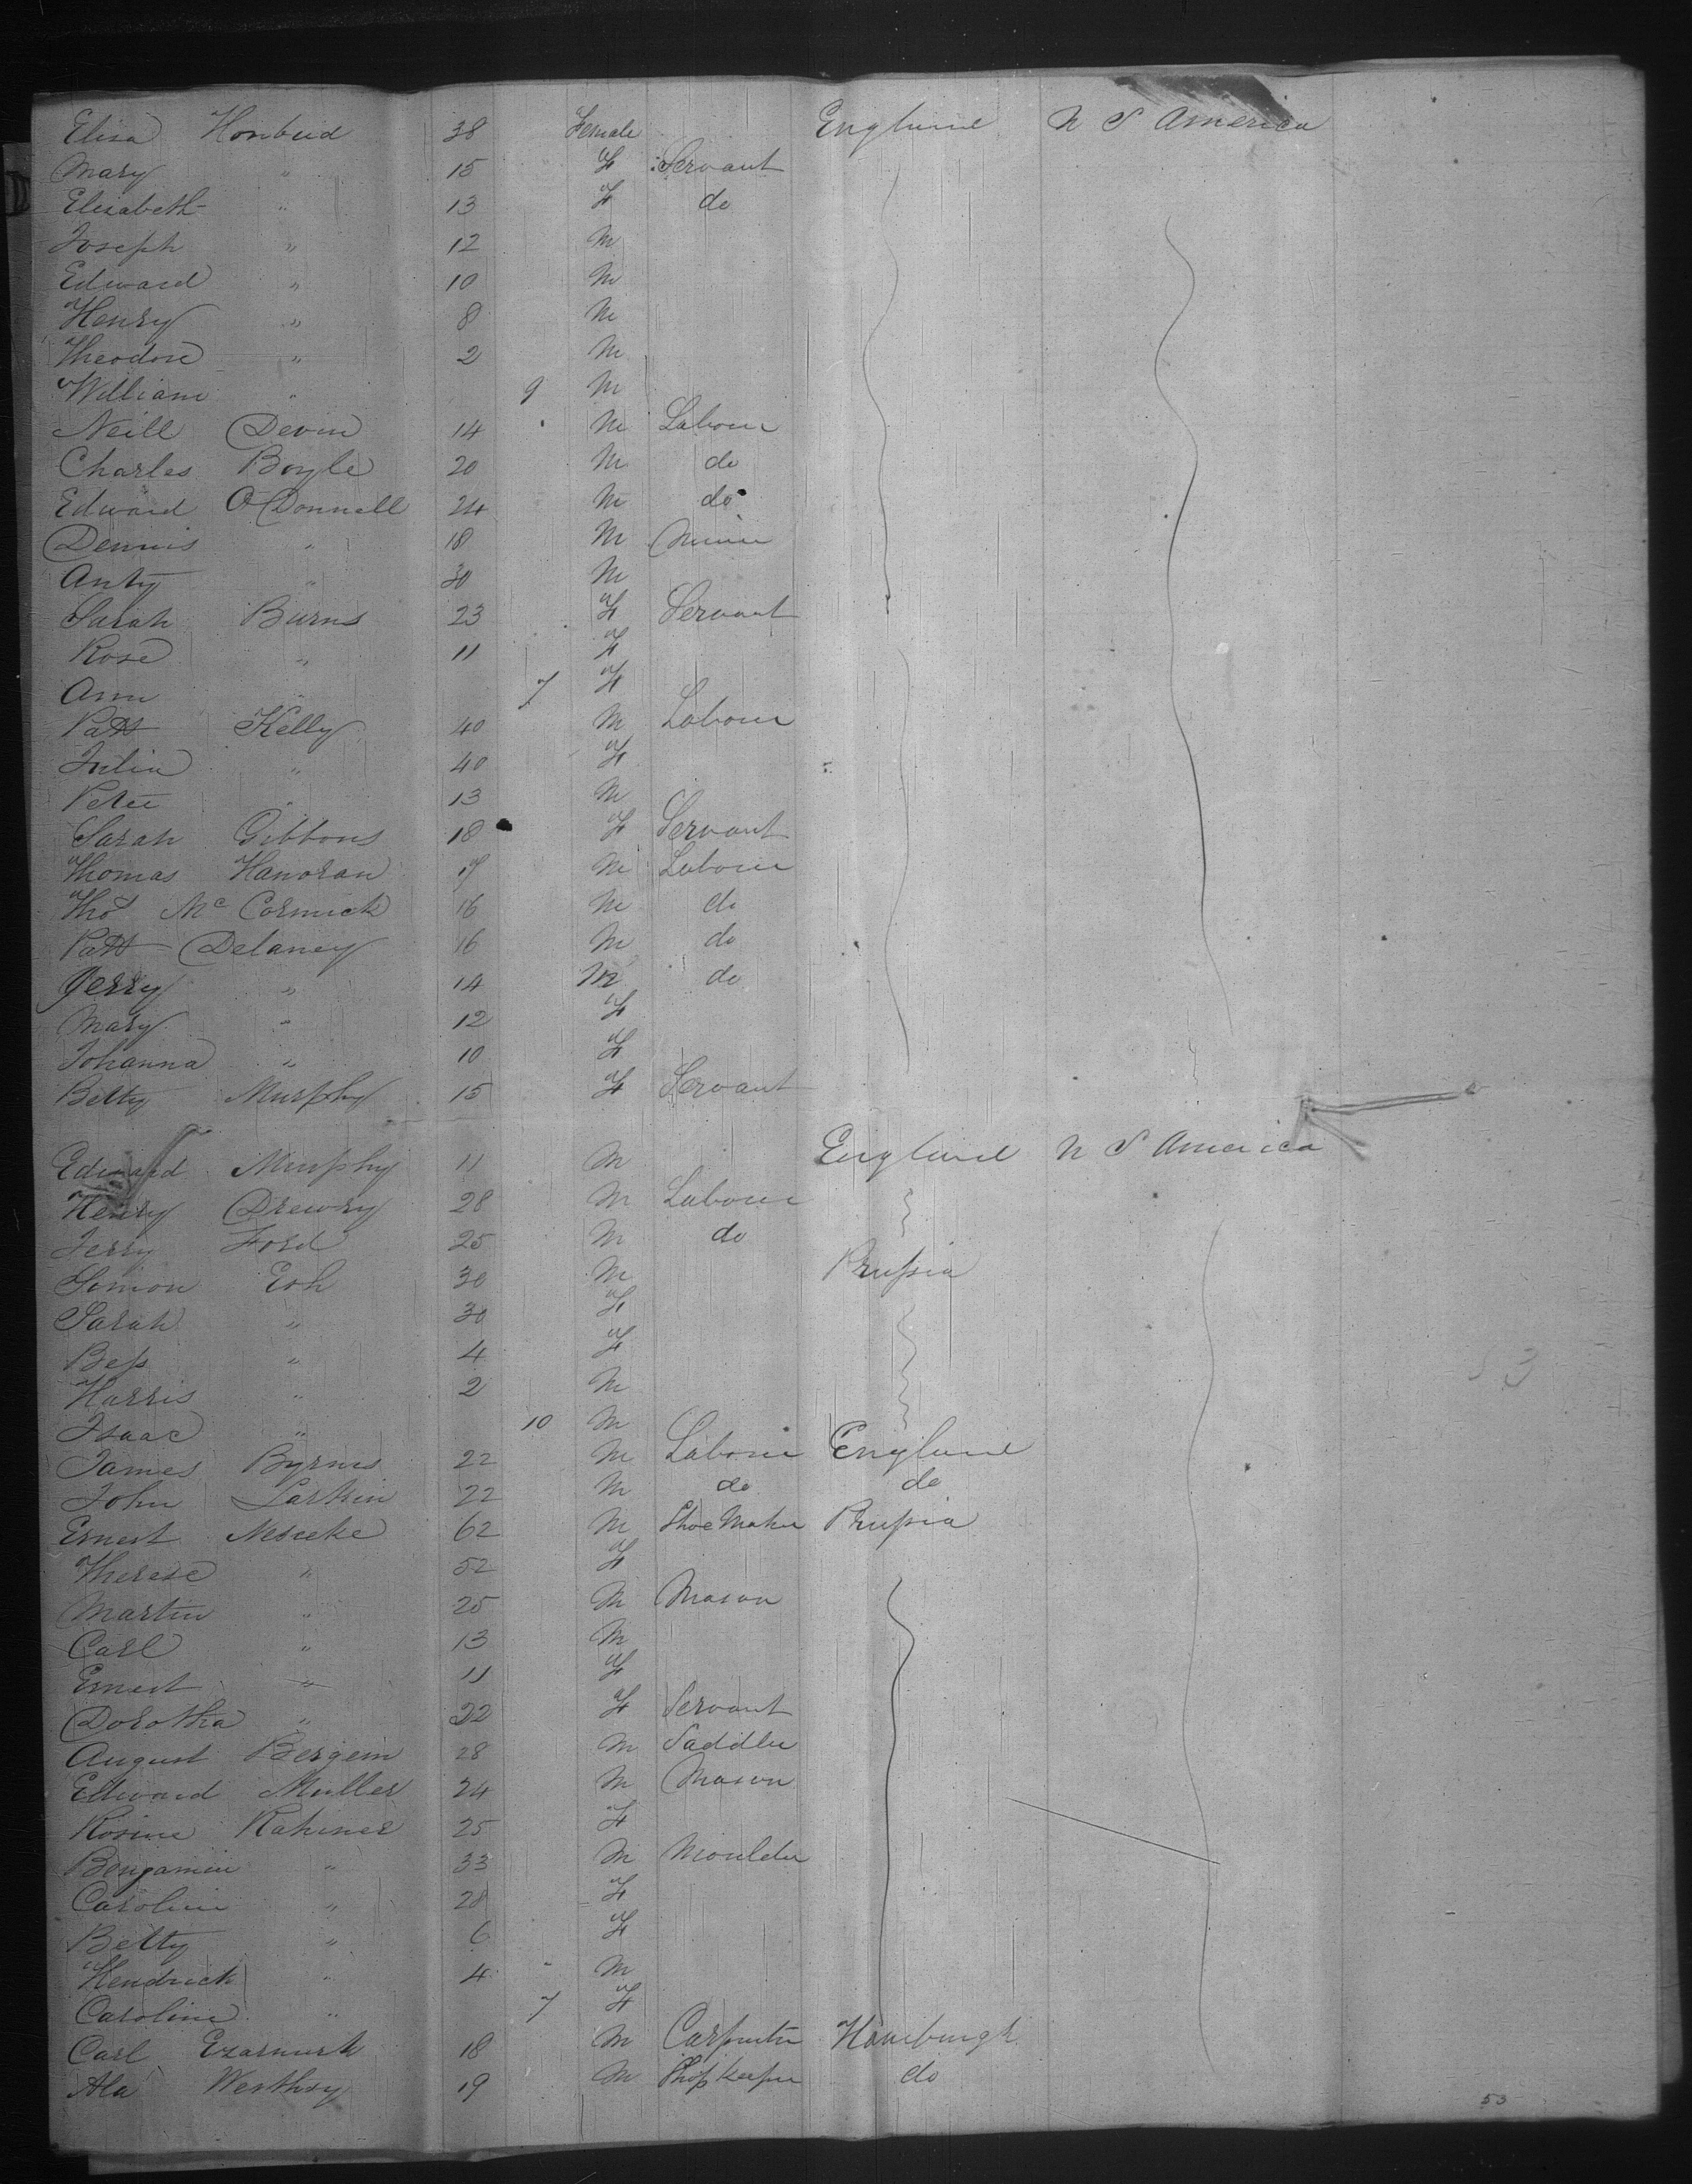 Elisa Honbud 38 Female England N S America
Mary " 15 F Servant
Elisabeth " 13 F do
Joseph " 12 M
Edward " 10 M
Henry " 8 M
Theodore " 2 M
William " 9 M
Neill Devin 14 M Labour
Charles Boyle 20 M do
Edward O'Donnell 24 M do
Dennis " 18 M Miner
Anty " 30 M
Sarah Burns 23 F Servant
Rose " 11 F
Ann " 7 F
Patt Kelly 40 M Labour
Julia " 40 F
Peter " 13 M
Sarah Gibbons 18 F Servant
Thomas Hanoran 17 M Labour
Thos Mc Cormick 16 M do
Patt Delaney 16 M do
Jerry " 14 M do
Mary " 12 F
Johanna " 10 F
Betty Murphy 15 F Servant
Edward Murphy 11 M England N S America
Henry Drewry 28 M Labour
Jerry Ford 25 M do
Simon Esh 30 M Prussia
Sarah " 30 F
Bess " 4 F
Harris " 2 M
Isaac " 10 M
James Byrnes 22 M Labour England
John Larkin 22 M do do
Ernest 62 M Shoe Maker Prussia
Therese " 52 F
Martin " 25 M Mason
Carl " 13 M
Ernest " 11 F
Dorothea " 22 F Servant
August Bergem 28 M Saddler
Edward Muller 24 M Mason
Rosine Rahmer 25 F
Bengamin " 33 M Moulder
Caroline " 28 F
Betty " 6 F
Hendrick " 4 M
Caroline " 7 F
Carl 18 M Carpenter Hamburgh
Ala 19 M Shopkeeper do
53
53